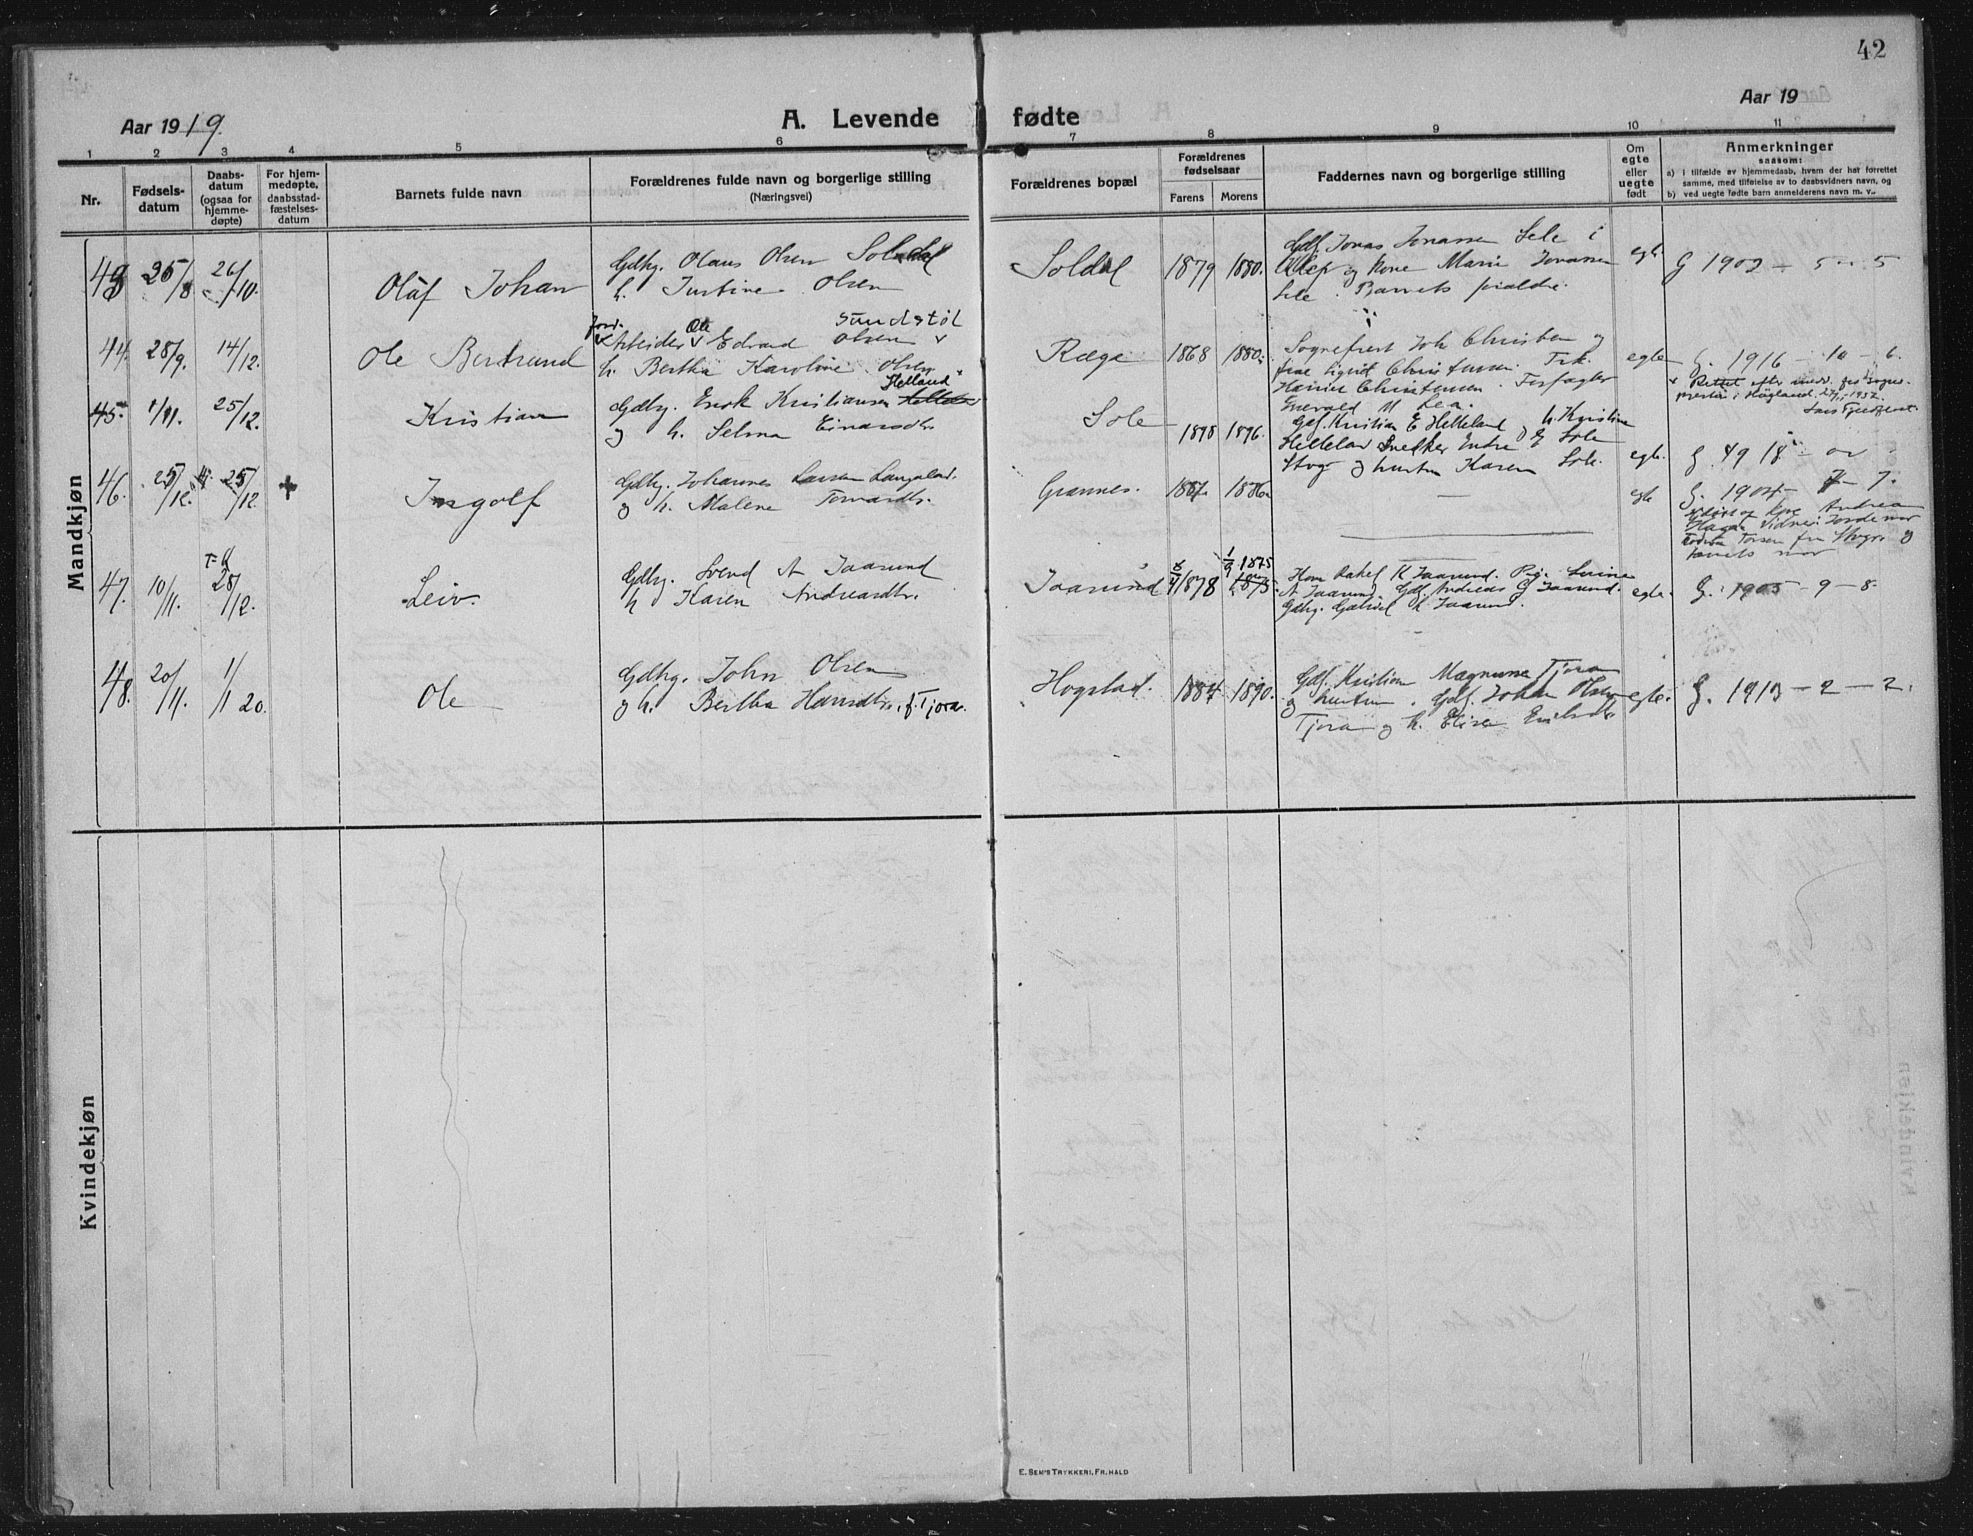 42
Aar 1919.
A. Levende fødte
Aar 19
1 2 3 4 5 6 7 8 9 10 11
Nr.
Fødsels-
datum
Daabs-
datum
(ogsaa for
hjemme-
døpte)
For hjem-
medøpte,
daabsstad-
fæstelses-
datum
Barnets fulde navn
Forældrenes fulde navn og borgerlige stilling
(Næringsvei)
Forældrenes bopæl
Forældrenes
fødselsaar
Farens Morens
Faddernes navn og borgerlige stilling
Om
egte
eller
uegte
født
Anmerkninger
saasom:
a) i tilfælde av hjemmedaab, hvem der har forrettet
samme, med tilføielse av to daabsvidners navn, og
b) ved uegte fødte barn anmelderens navn m. v..
Mandkjøn
43 25/8 26/10. Olaf Johan
Gdbg. Olaus Olsen Soldal
h. Justine Olsen
Soldal 1879 1880.
Gdf. Jonas Jonassen Sele i
Klep og kone Marie Jonassen
Sele. Barnets forældre.
egte G 1903 - 5 - 5
44 28/9. 14/12. Ole Bertrand
Sundstøl
Arbeider Ole Edvard Olsen
h. Bertha Karoline Olsen
Ræge 1868 1880.
Sogneprest Joh Christensen og
frue Sigrid Christensen. Frk.
Hannie Christensen.
Enevald M Lea.
egte G. 1916 - 10 - 6.
Rettet efter
i Høgland
45. 1/11. 25/12. Kristian
Gdbg. Enok Kristiansen Helland
og h. Selma Einarsdtr.
Sole 1898 1896.
Gdf. Kristian E Helleland og h. Kristine
Helleland Snekker Endre G Sole
og hustru Karen Sole.
egte. G. 1918 -
46. 25/12. 25/12 + Ingolf
Gdbg. Johannes Larsen Langeland.
og h. Malene Torvardtr.
Grannes. 1887. 1886.
egte G. 1904 - 7 - 7.
Andrea
Vidner: Jordemor
og
barnets mor
47. 10/11. 28/12. Leiv.
Gdbg. Svend A Jaasund
h Karen Andreasdtr.
Jaasund 1878 1/9 1875
Kone Rakel K Jaasund.
A Jaasund. Gdf. Andreas G Jaasund.
Gdbg. Gabriel K Jaasund.
egte. G. 1905 - 9 - 8.
48. 20/11. 1/1 20. Ole
Gdbg. John Olsen
og h. Bertha Hansdtr. f. Tjora.
Hogstad. 1884 1890.
Gdf. Kristian Magnussen Tjora
og hustru. Gdf. Johan Olsen
Tjora og h. Elise Emilsdtr.
egte. G. 1913 - 2 - 2.
Kvindekjøn
E. SEM'S TRYKKERI, FR.HALD